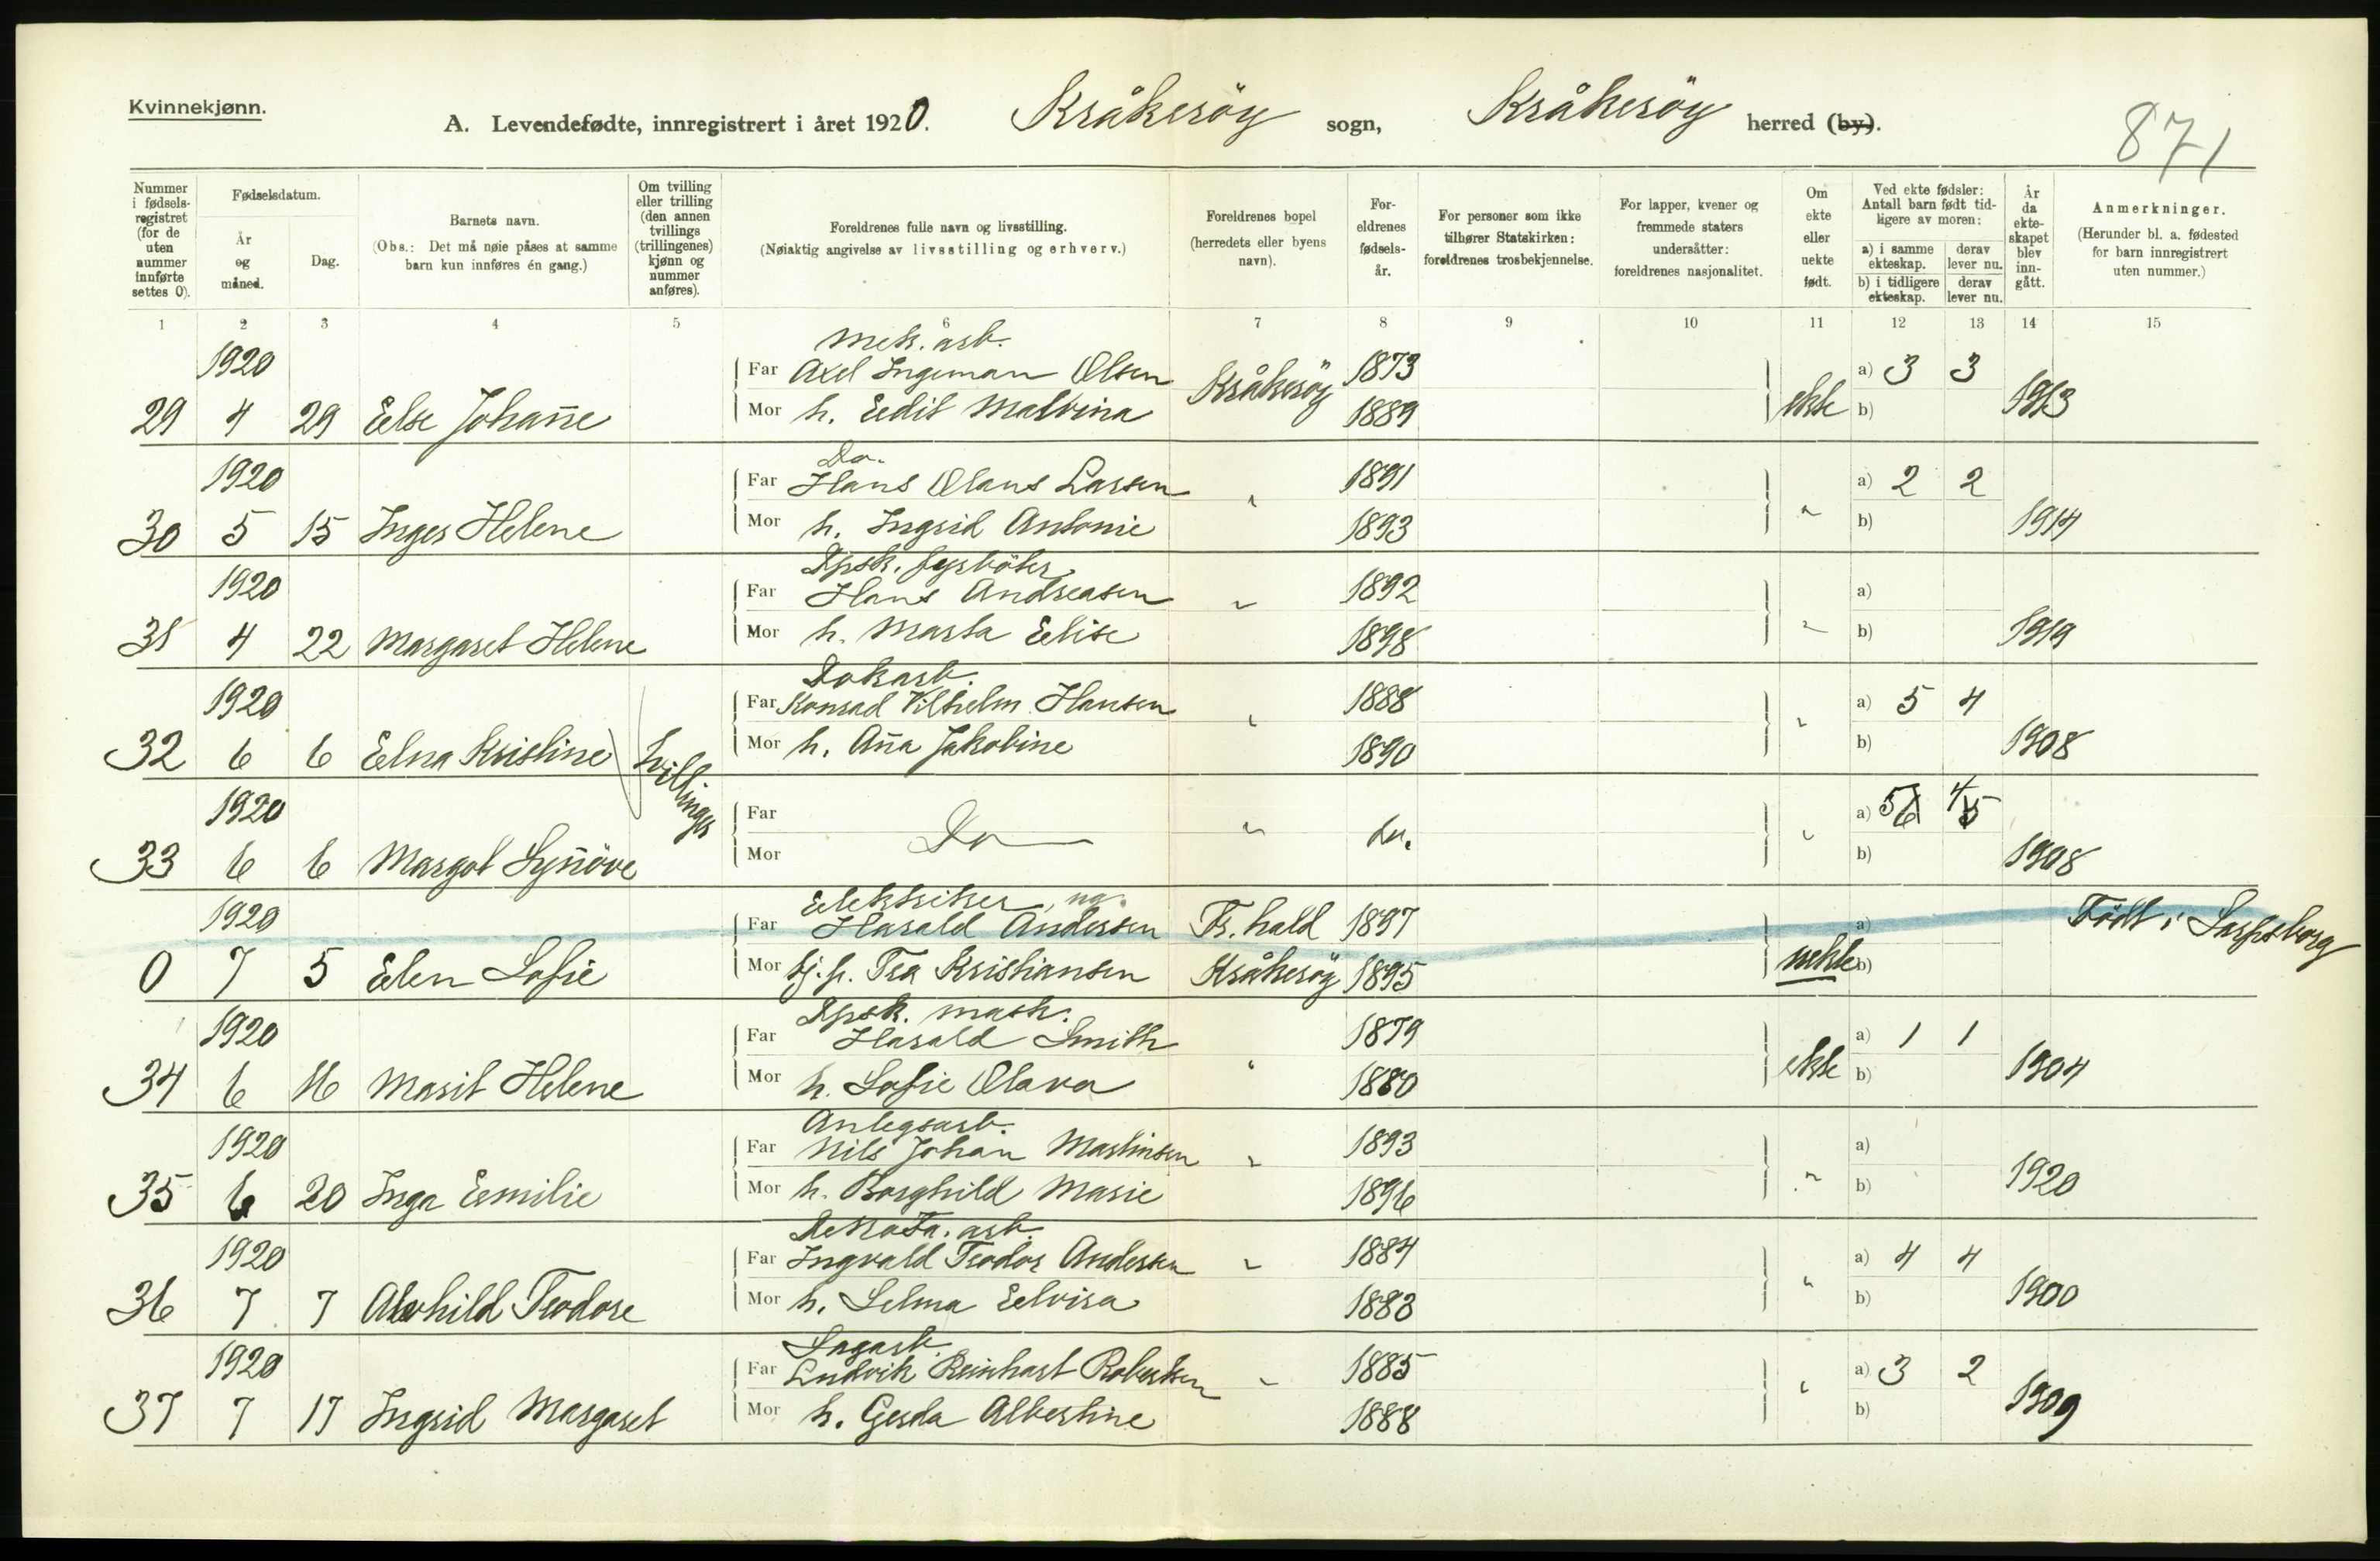 Kvinnekjønn.
A. Levendefødte, innregistrert i året 1920. Kråkeröy sogn, Kråkeröy herred (by).
871
Nummer i fødselsregistret (for de uten nummer innførte settes 0).
Fødselsdatum.
År og måned.
Dag.
Barnets navn.
(Obs.: Det må nøie påses at samme barn kun innføres én gang.)
Om tvilling eller trilling (den annen tvillings (trillingenes) kjønn og nummer anføres).
Foreldrenes fulle navn og livsstilling.
(Nøiaktig angivelse av livsstilling og erhverv.)
Foreldrenes bopel (herredets eller byens navn).
Foreldrenes fødselsår.
For personer som ikke tilhører Statskirken: foreldrenes trosbekjennelse.
For lapper, kvener og fremmede staters undersåtter: foreldrenes nasjonalitet.
Om ekte eller uekte født.
Ved ekte fødsler: Antall barn født tidligere av moren:
a) i samme ekteskap. derav lever nu.
b) i tidligere ekteskap. derav lever nu.
År da ekteskapet blev inngått.
Anmerkninger.
(Herunder bl. a. fødested for barn innregistrert uten nummer.)
1 2 3 4 5 6 7 8 9 10 11 12 13 14 15
Mek. arb.
1920 Far Axel Ingeman Olsen Kråkeröy 1873 a) 3 3
29 4 29 Else Johan̄e Mor h. Edit Malvina 1889 ekte b) 1913
Do.
1920 Far Hans Olaus Larsen " 1891 a) 2 2
30 5 15 Inger Helene Mor h. Ingrid Antonie 1893 " b) 1914
Dpsk. fyrböter
1920 Far Hans Andreasen " 1892 a)
31 4 22 Margaret Helene Mor h. Marta Elise 1898 " b) 1919
Dokarb.
1920 Far Konrad Vilhelm Hansen " 1888 a) 5 4
32 6 6 Elna Kristine tvillinger Mor h. An̄a Jakobine 1890 " b) 1908
1920 Far a) 5 4
Do " do. "
33 6 6 Margot Syn̄öve Mor b) 1908
Elektriker, ug.
1920 Far Harald Andersen Fr. hald 1897 a) Födt i Sarpsborg
0 7 5 Elen Sofie Mor Tea Kristiansen Kråkeröy 1895 uekte b)
Dpsk. mask.
1920 Far Harald Smith " 1879 a) 1 1
34 6 16 Marit Helene Mor h. Sofie Olava 1880 ekte b) 1904
Anlegsarb.
1920 Far Nils Johan Martinsen " 1893 a)
35 6 20 Inga Emilie Mor h. Borghild Marie 1896 " b) 1920
1920 Far Ingvald Teodor Andersen " 1884 a) 4 4
36 7 7 Teodore Mor h. Selma Elvira 1883 " b) 1900
Sagarb.
1920 Far Ludvik Reinhart Robertsen " 1885 a) 3 2
37 7 17 Ingrid Margaret Mor h. Gerda Albertine 1888 " b) 1909